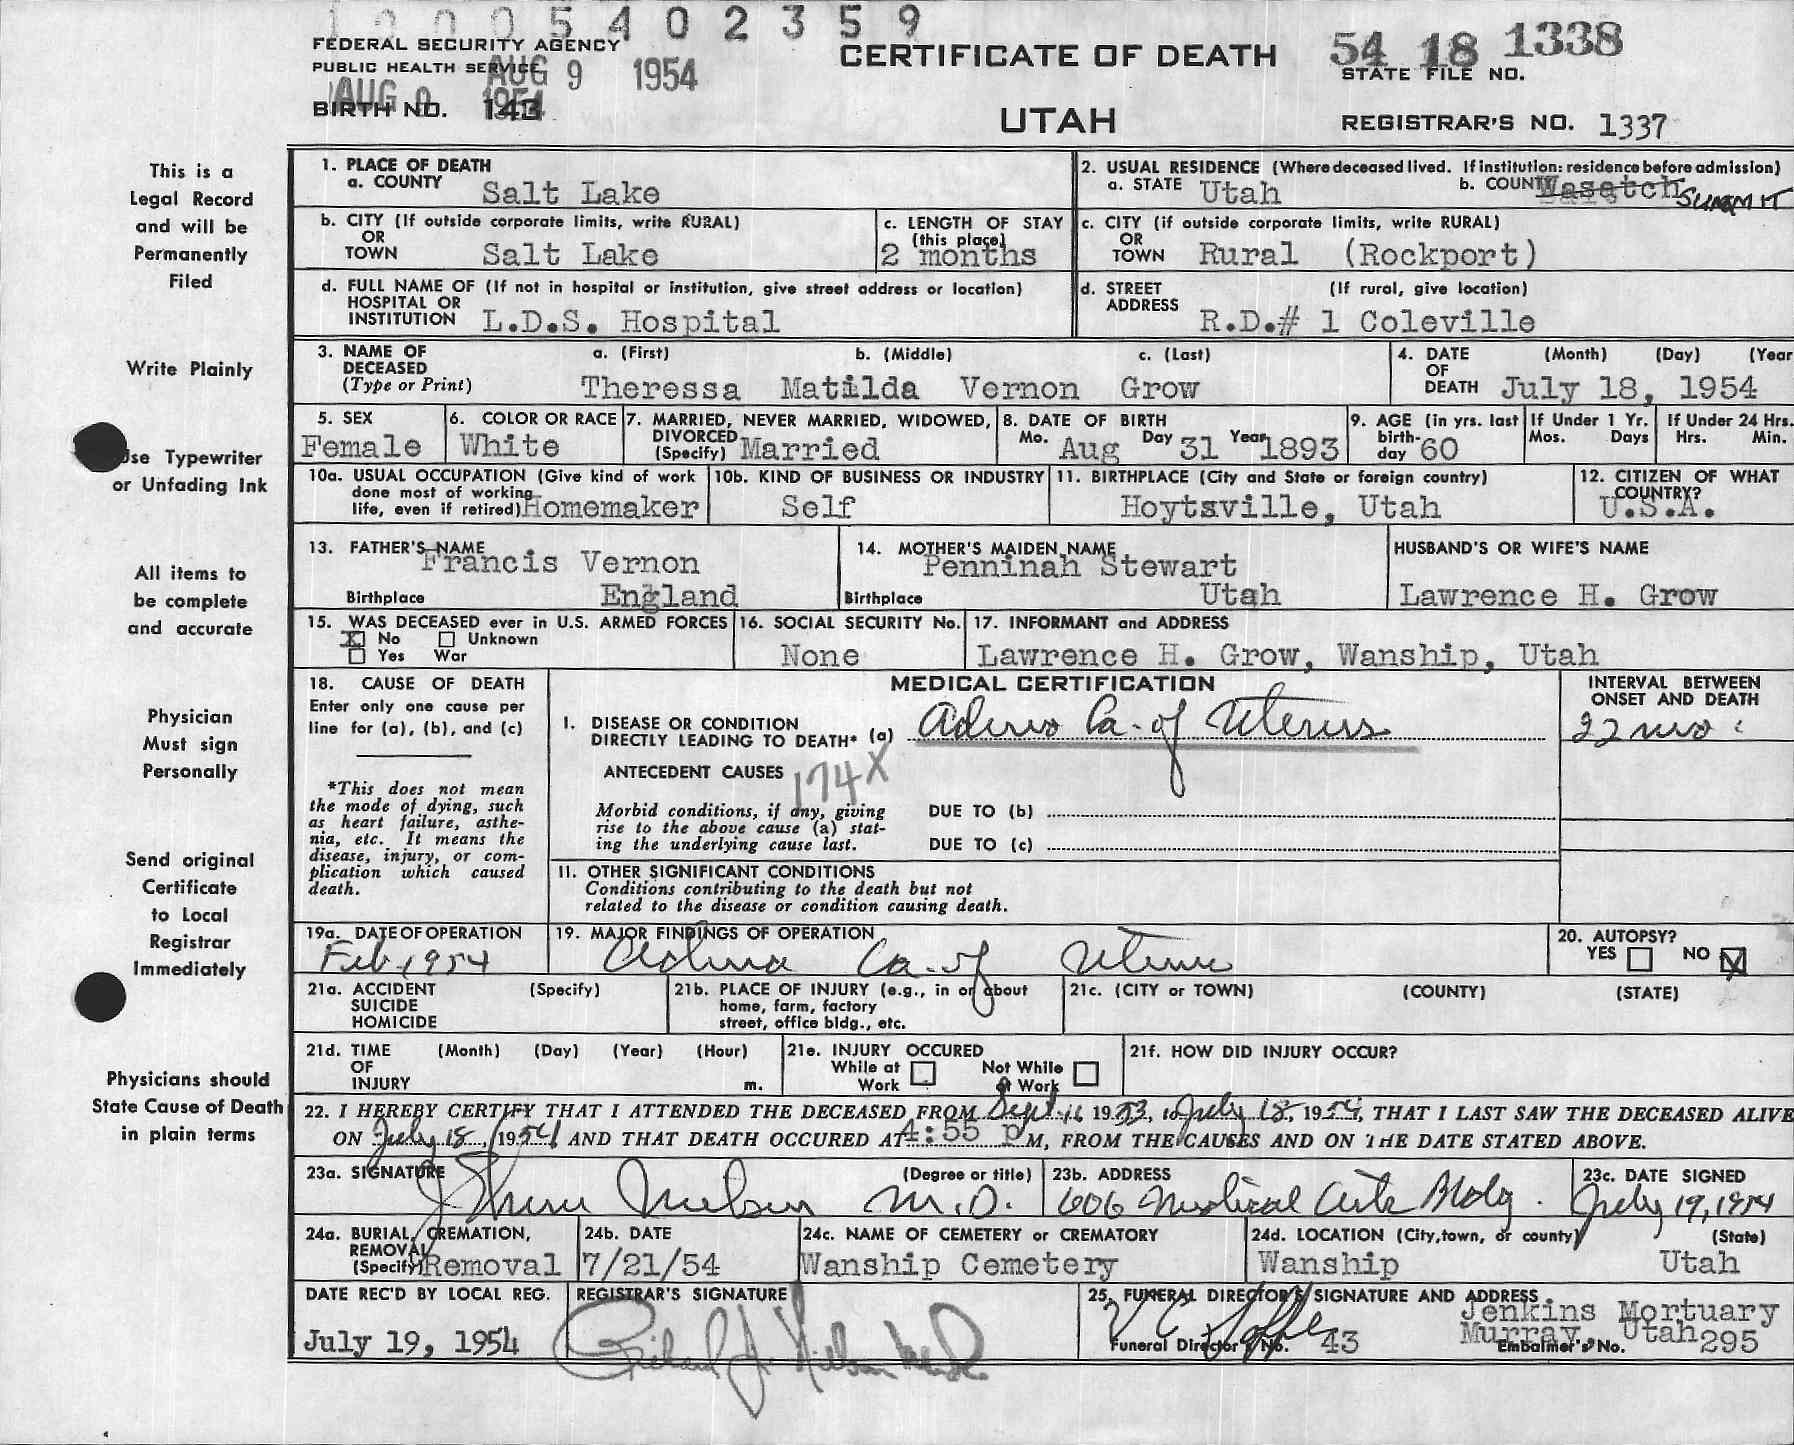 1 2 0 0 5 4 0 2 3 5 9
FEDERAL SECURITY AGENCY
PUBLIC HEALTH SERVICE
AUG 9 1954
AUG 9 1954
BIRTH NO. 143
CERTIFICATE OF DEATH
UTAH
54 18 1338
STATE FILE NO.
REGISTRAR'S NO. 1337
This is a
Legal Record
and will be
Permanently
Filed
Write Plainly
Use Typewriter
or Unfading Ink
All items to
be complete
and accurate
Physician
Must sign
Personally
Send original
Certificate
to Local
Registrar
Immediately
Physicians should
State Cause of Death
in plain terms
1. PLACE OF DEATH
a. COUNTY Salt Lake
2. USUAL RESIDENCE (Where deceased lived. If institution: residence before admission)
a. STATE Utah b. COUNTY Wasatch SUMMIT
b. CITY (If outside corporate limits, write RURAL)
OR
TOWN Salt Lake
c. LENGTH OF STAY
(this place)
2 months
c. CITY (if outside corporate limits, write RURAL)
OR
TOWN Rural (Rockport)
d. FULL NAME OF (If not in hospital or institution, give street address or location)
HOSPITAL OR
INSTITUTION L.D.S. Hospital
d. STREET (If rural, give location)
ADDRESS R.D.# 1 Coleville
3. NAME OF a. (First) b. (Middle) c. (Last)
DECEASED
(Type or Print) Theressa Matilda Vernon Grow
4. DATE (Month) (Day) (Year
OF
DEATH July 18, 1954
5. SEX
Female
6. COLOR OR RACE
White
7. MARRIED, NEVER MARRIED, WIDOWED,
DIVORCED
(Specify) Married
8. DATE OF BIRTH
Mo. Aug Day 31 Year 1893
9. AGE (in yrs. last
birth-
day 60
If Under 1 Yr.
Mos. Days
If Under 24 Hrs.
Hrs. Min.
10a. USUAL OCCUPATION (Give kind of work
done most of working
life, even if retired) Homemaker
10b. KIND OF BUSINESS OR INDUSTRY
Self
11. BIRTHPLACE (City and State or foreign country)
Hoytsville, Utah
12. CITIZEN OF WHAT
COUNTRY?
U.S.A.
13. FATHER'S NAME
Francis Vernon
Birthplace England
14. MOTHER'S MAIDEN NAME
Penninah Stewart
Birthplace Utah
HUSBAND'S OR WIFE'S NAME
Lawrence H. Grow
15. WAS DECEASED ever in U.S. ARMED FORCES
X No Unknown
Yes War
16. SOCIAL SECURITY No.
None
17. INFORMANT and ADDRESS
Lawrence H. Grow, Wanship, Utah
18. CAUSE OF DEATH
Enter only one cause per
line for (a), (b), and (c)
*This does not mean
the mode of dying, such
as heart failure, asthe-
nia, etc. It means the
disease, injury, or com-
plication which caused
death.
MEDICAL CERTIFICATION
I. DISEASE OR CONDITION
DIRECTLY LEADING TO DEATH* (a) Adeno Ca. of Uterus
ANTECEDENT CAUSES 174X
Morbid conditions, if any, giving
rise to the above cause (a) stat-
ing the underlying cause last.
DUE TO (b)
DUE TO (c)
11. OTHER SIGNIFICANT CONDITIONS
Conditions contributing to the death but not
related to the disease or condition causing death.
INTERVAL BETWEEN
ONSET AND DEATH
22 mos
19a. DATE OF OPERATION
Feb 1954
19. MAJOR FINDINGS OF OPERATION
Adeno Ca. of Uterus
20. AUTOPSY?
YES NO X
21a. ACCIDENT (Specify)
SUICIDE
HOMICIDE
21b. PLACE OF INJURY (e.g., in or about
home, farm, factory
street, office bldg., etc.
21c. (CITY or TOWN) (COUNTY) (STATE)
21d. TIME (Month) (Day) (Year) (Hour)
OF
INJURY m.
21e. INJURY OCCURED
While at Work Not While at Work
21f. HOW DID INJURY OCCUR?
22. I HEREBY CERTIFY THAT I ATTENDED THE DECEASED FROM Sept. 16 1953, to July 18, 1954, THAT I LAST SAW THE DECEASED ALIVE
ON July 18, 1954 AND THAT DEATH OCCURED AT 4:55 P M, FROM THE CAUSES AND ON THE DATE STATED ABOVE.
23a. SIGNATURE (Degree or title)
M.D.
23b. ADDRESS
606 Medical Arts Bldg.
23c. DATE SIGNED
July 19, 1954
24a. BURIAL, CREMATION,
REMOVAL
(Specify) Removal
24b. DATE
7/21/54
24c. NAME OF CEMETERY or CREMATORY
Wanship Cemetery
24d. LOCATION (City, town, or county) (State)
Wanship Utah
DATE REC'D BY LOCAL REG.
July 19, 1954
REGISTRAR'S SIGNATURE
25. FUNERAL DIRECTOR'S SIGNATURE AND ADDRESS
Jenkins Mortuary
Murray, Utah
Funeral Director's No. 43 Embalmer's No. 295